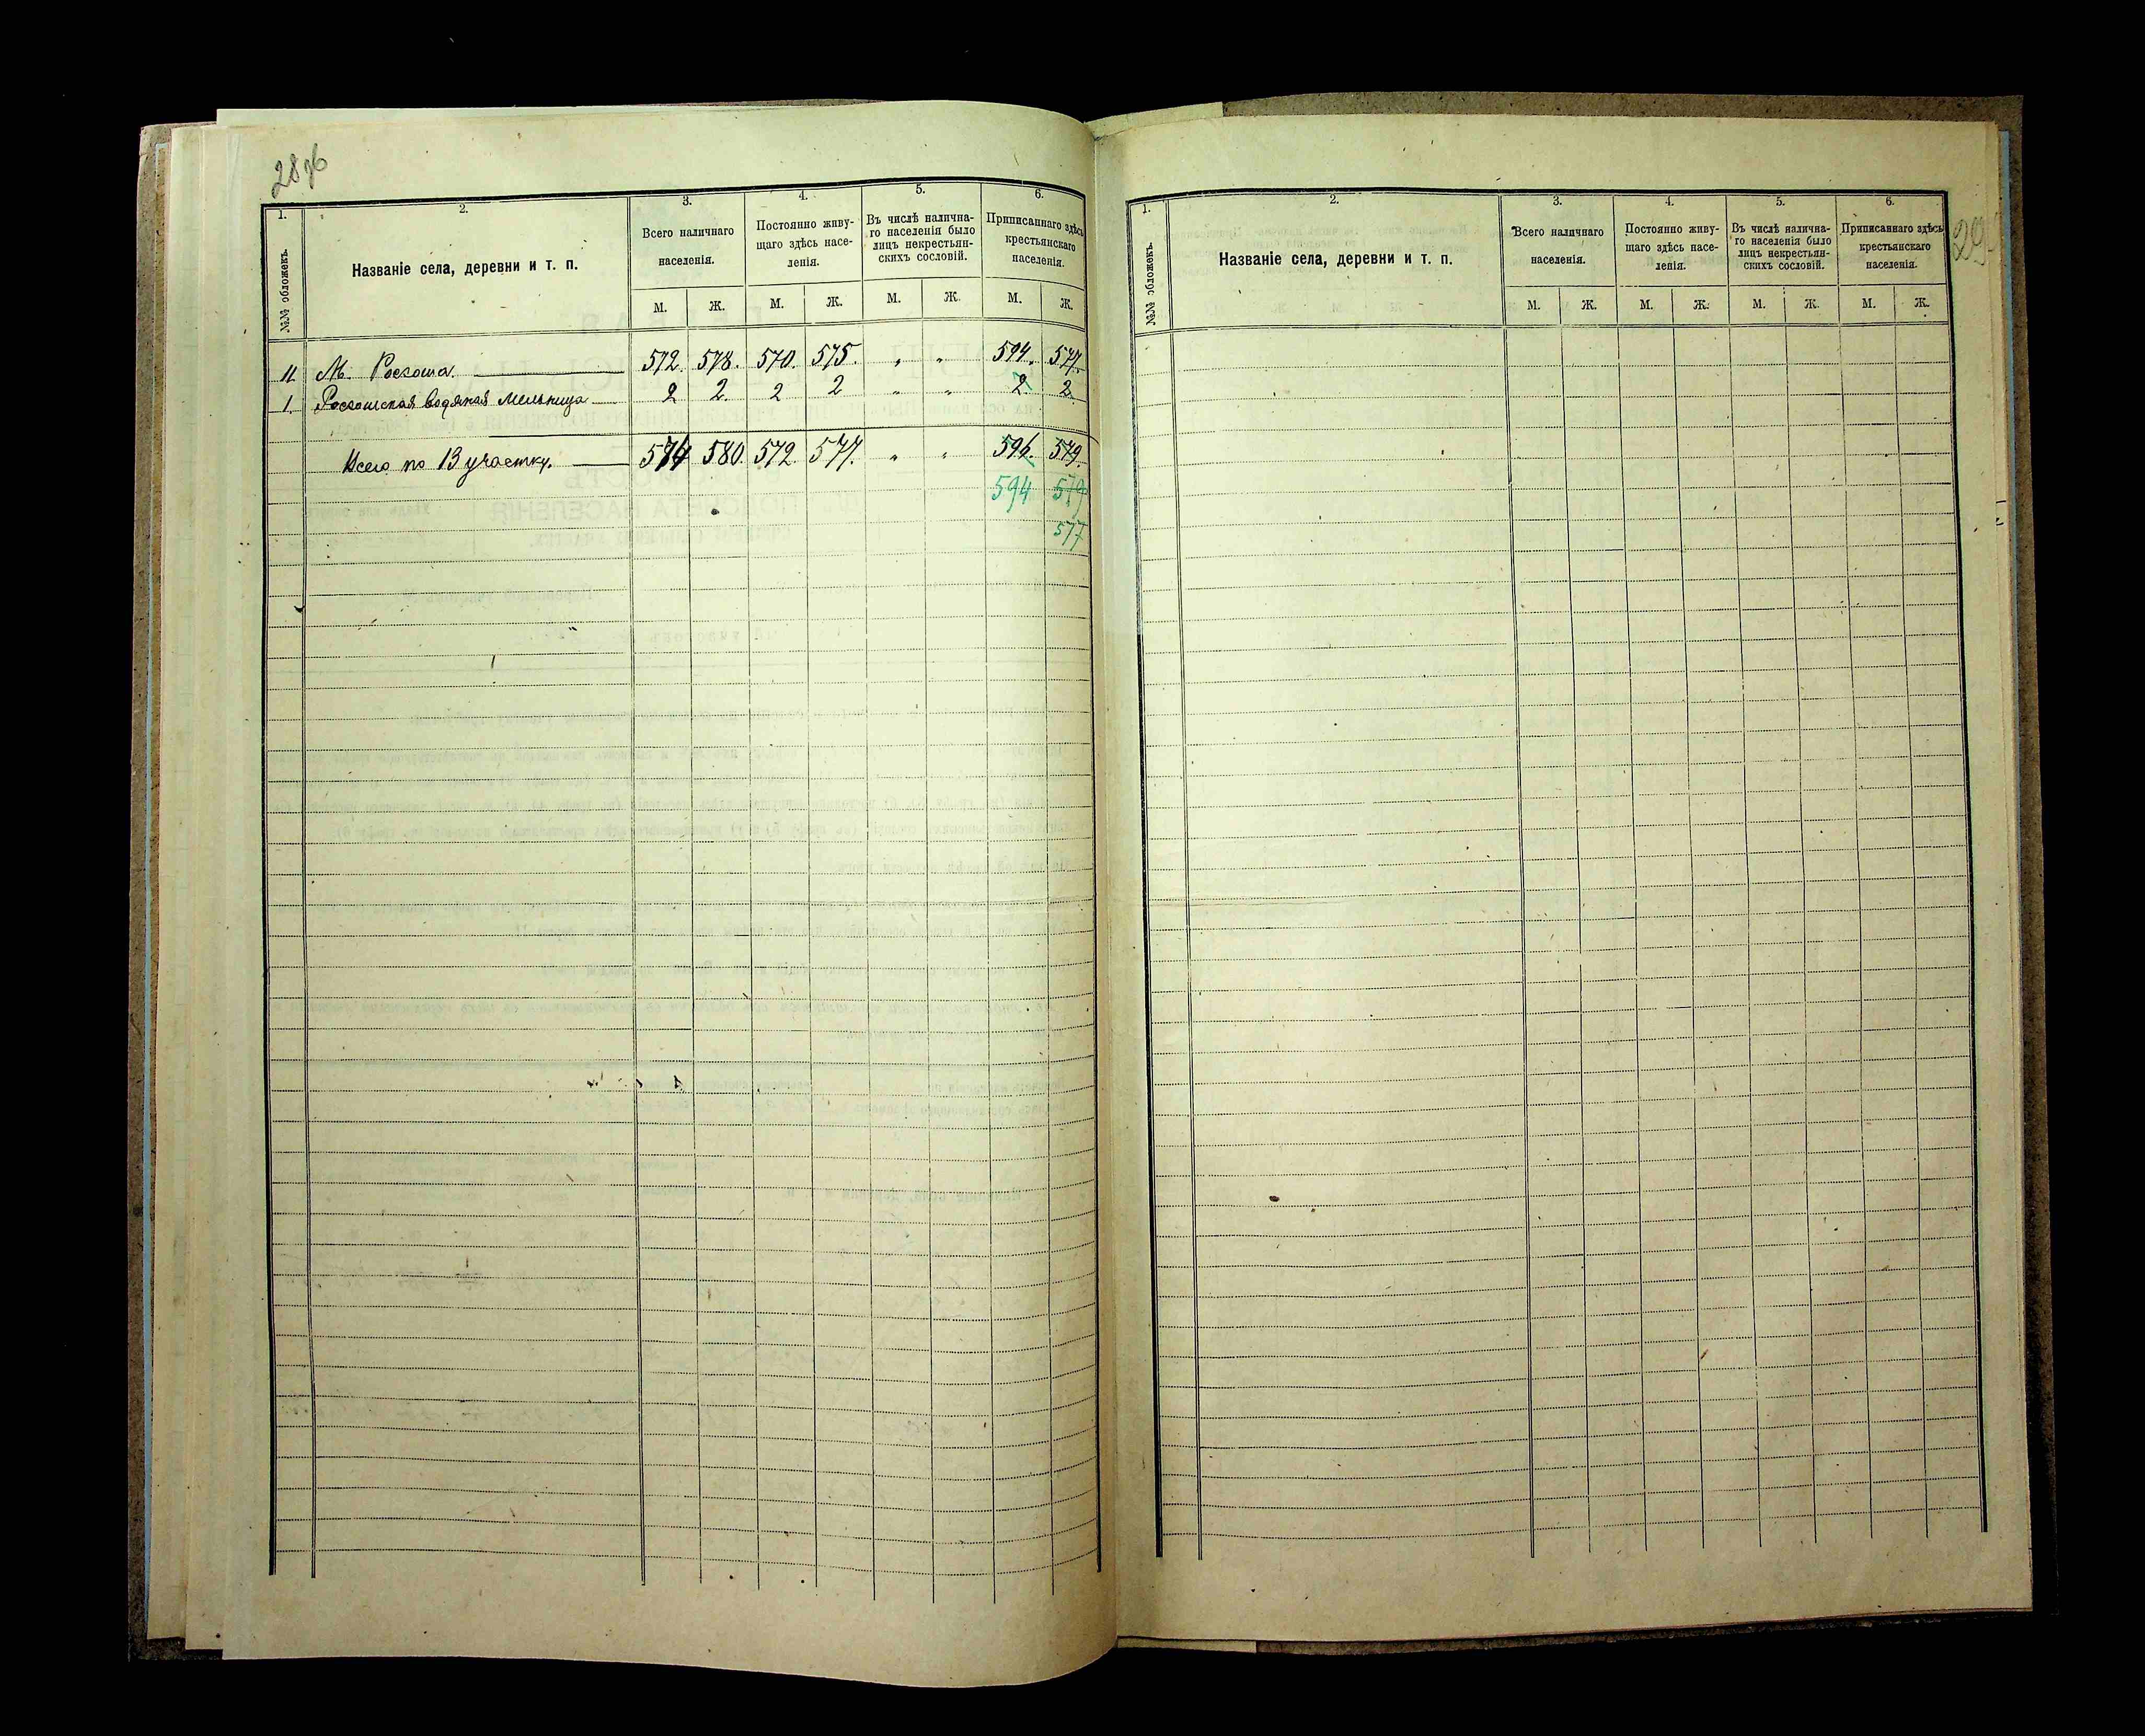 28об
1. 2. 3. 4. 5. 6.
№№ обложекъ.
Названіе села, деревни и т. п.
Всего наличнаго
населенія.
Постоянно живу-
щаго здѣсь насе-
ленія.
Въ числѣ налична-
го населенія было
лицъ некрестьян-
скихъ сословій.
Приписаннаго здѣсь
крестьянскаго
населенія.
М. Ж. М. Ж. М. Ж. М. Ж.
11 М. Россоша. 572. 578. 570. 575. " " 594. 577.
1. Россошская водяная мельница 2 2. 2 2 " " 2. 2.
Всего по 13 участку. 574 580. 572. 577. " " 596. 579.
594 579
577
29
1. 2. 3. 4. 5. 6.
№№ обложекъ.
Названіе села, деревни и т. п.
Всего наличнаго
населенія.
Постоянно живу-
щаго здѣсь насе-
ленія.
Въ числѣ налична-
го населенія было
лицъ некрестьян-
скихъ сословій.
Приписаннаго здѣсь
крестьянскаго
населенія.
М. Ж. М. Ж. М. Ж. М. Ж.